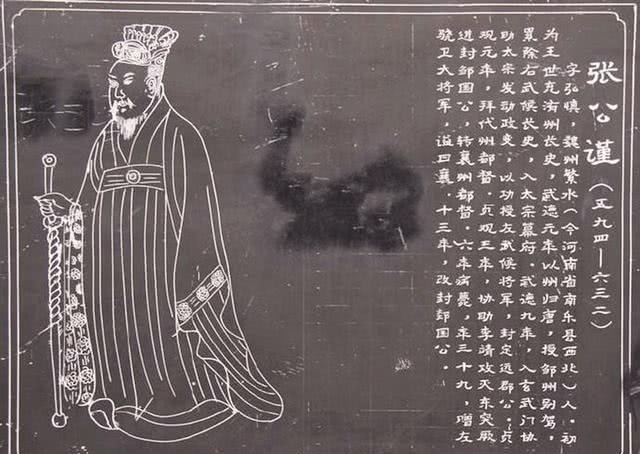 张公谨（五九四—六三二）
字弘慎，魏州繁水（今河南省南乐县西北）人。初
为王世充洧州长史，武德元年以州归唐，授邹州别驾，
累除右武候长史，入太宗幕府，武德九年，入玄武门协
助太宗发动政变，以功授左武候将军，封定远郡公。贞
观元年，拜代州都督。贞观三年，协助李靖攻灭东突厥
进封邹国公，转襄州都督。六年病薨，年三十九，赠左
骁卫大将军，谥曰襄。十三年，改封郯国公。